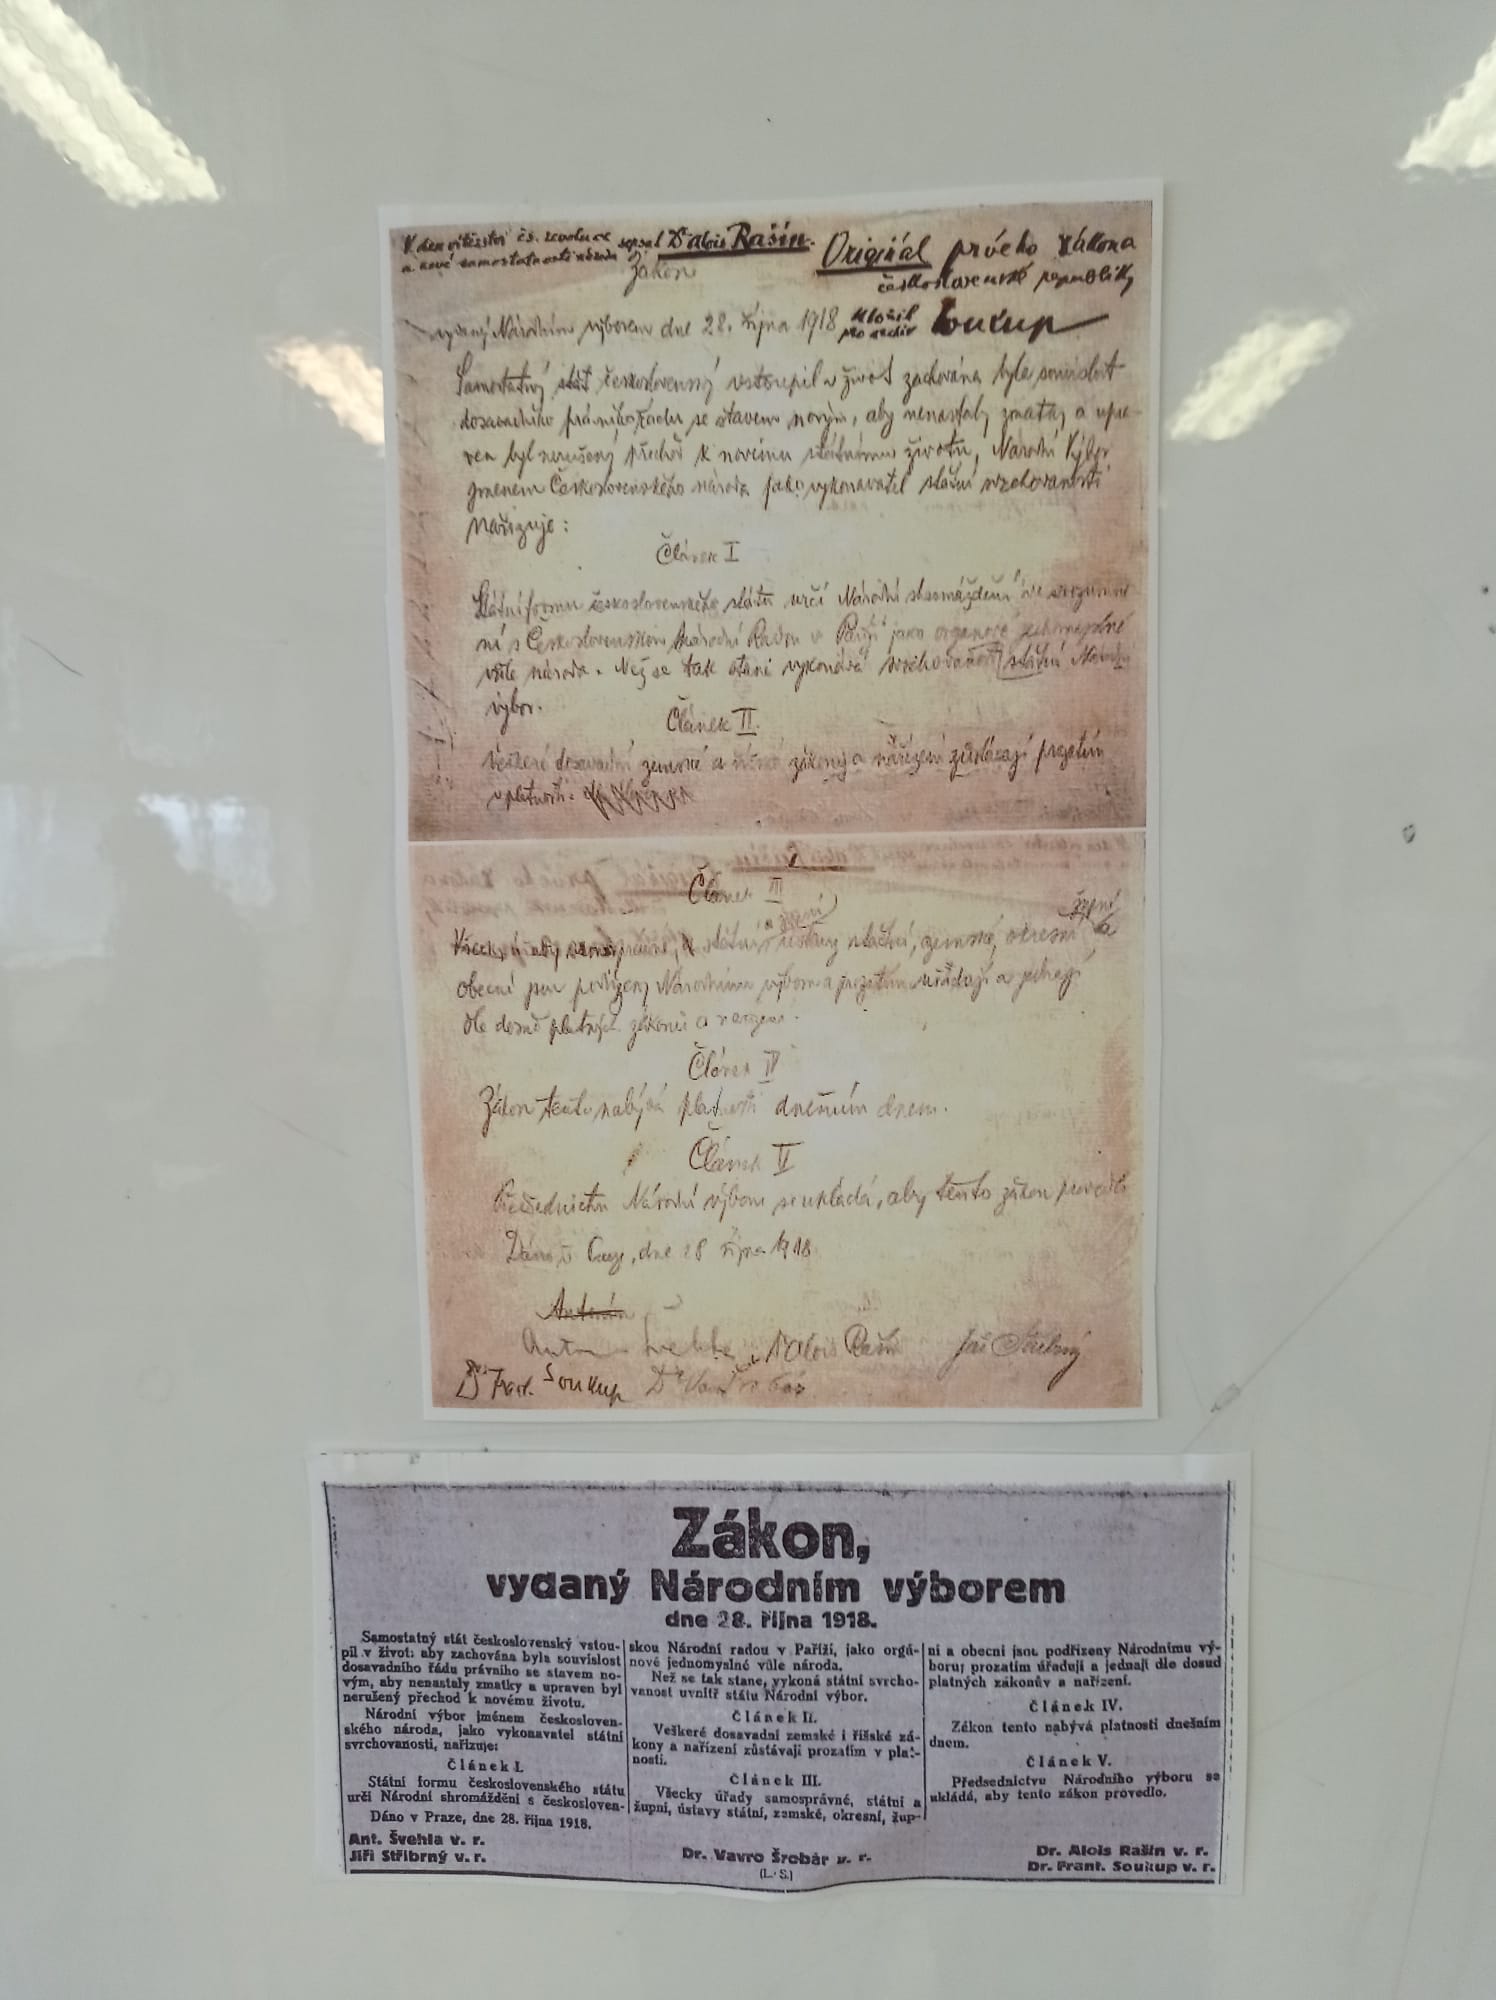 V den vítězství čs. revoluce
a nové samostatnosti národa sepsal Dr Alois Rašín.
Originál prvého zákona
československé republiky
uložil
pro archiv Soukup
Zákon
vydaný Národním výborem dne 28. října 1918
Samostatný stát československý vstoupil v život zachována byla souvislost
dosavadního právního řádu se stavem novým, aby nenastaly zmatky a upra-
ven byl nerušený přechod k novému státnímu životu, Národní Výbor
jménem Československého národa jako vykonavatel státní svrchovanosti
nařizuje:
Článek I
Státní formu československého státu určí Národní shromáždění ve srozumě
ní s Československou Národní Radou v Paříži jako orgánové jednomyslné
vůle národa. Než se tak stane vykonává svrchovanost státní Národní
výbor.
Článek II.
Veškeré dosavadní zemské a říšské zákony a nařízení zůstávají prozatím
v platnosti.
Článek III
župní
státní ústavy státní, zemské, okresní a
obecní jsou podřízeny Národnímu výboru a prozatím úřadují a jednají
dle dosud platných zákonů a nařízení.
Článek IV
Zákon tento nabývá platnosti dnešním dnem.
Článek V
Předsednictvu Národní výboru se ukládá, aby tento zákon provedlo
Dáno v Praze, dne 28 října 1918
Antonín
Antonín Švehla Dr Alois Rašín Jiří Stříbrný
Dr. Frant. Soukup Dr Vavro Šrobár
Zákon,
vydaný Národním výborem
dne 28. října 1918.
Samostatný stát československý vstou-
pil v život: aby zachována byla souvislost
dosavadního řádu právního se stavem no-
vým, aby nenastaly zmatky a upraven byl
nerušený přechod k novému životu.
Národní výbor jménem českosloven-
ského národa, jako vykonavatel státní
svrchovanosti, nařizuje:
Článek I.
Státní formu československého státu
určí Národní shromáždění s českosloven-
skou Národní radou v Paříži, jako orgá-
nové jednomyslné vůle národa.
Než se tak stane, vykoná státní svrcho-
vanost uvnitř státu Národní výbor.
Článek II.
Veškeré dosavadní zemské i říšské zá-
kony a nařízení zůstávají prozatím v plat-
nosti.
Článek III.
Všecky úřady samosprávné, státní a
župní, ústavy státní, zemské, okresní, žup-
ní a obecní jsou podřízeny Národnímu vý-
boru; prozatím úřadují a jednají dle dosud
platných zákonův a nařízení.
Článek IV.
Zákon tento nabývá platnosti dnešním
dnem.
Článek V.
Předsednictvu Národního výboru se
ukládá, aby tento zákon provedlo.
Dáno v Praze, dne 28. října 1918.
Ant. Švehla v. r.
Jiří Stříbrný v. r.
Dr. Vavro Šrobár v. r.
(L. S.)
Dr. Alois Rašín v. r.
Dr. Frant. Soukup v. r.